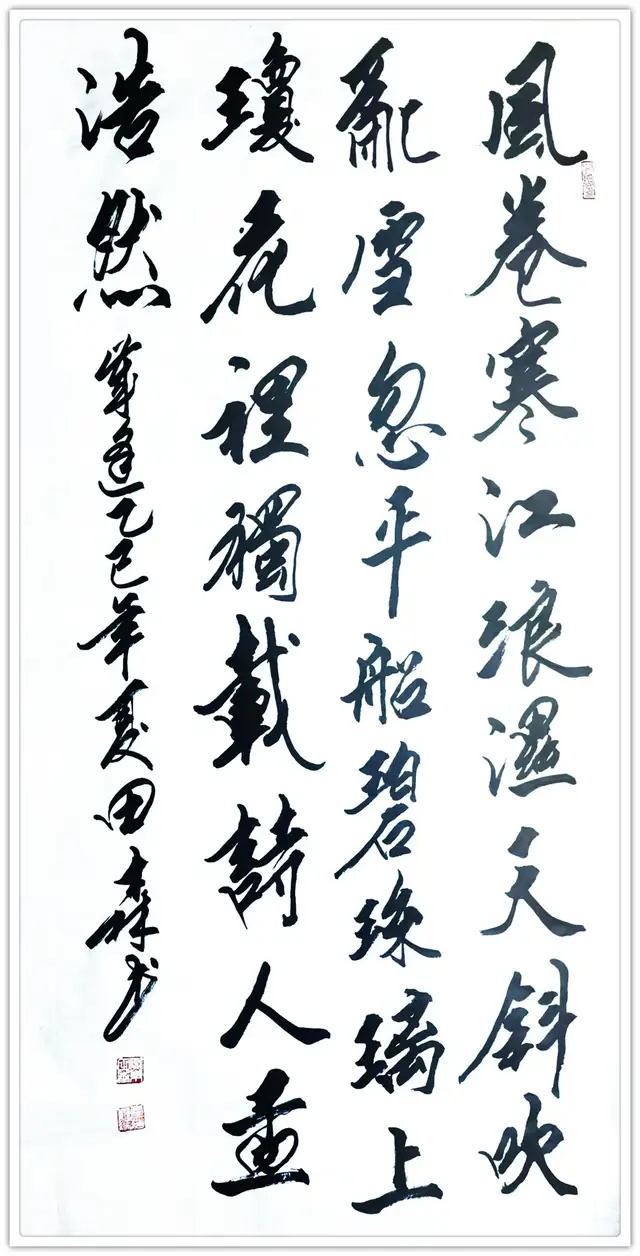 風卷寒江浪濕天斜吹
亂雪忽平船碧琉璃上
瓊花裡獨載詩人孟
浩然
歲逢乙巳年夏田森书